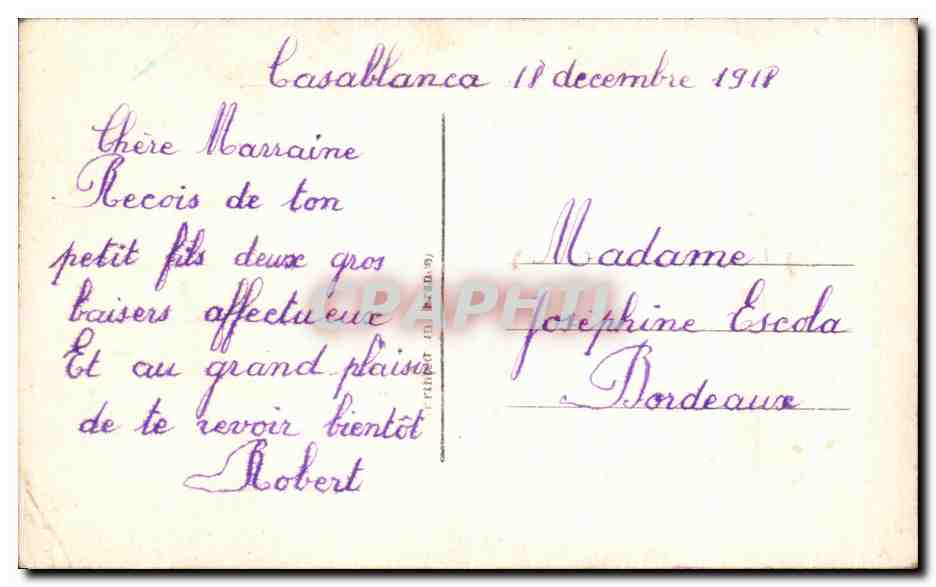 Casablanca 18 decembre 1918
Chère Marraine
Recois de ton
petit fils deux gros
baisers affectueux
Et au grand plaisir
de te revoir bientôt
Robert
Madame
Joséphine Escola
Bordeaux
CPAPHIL